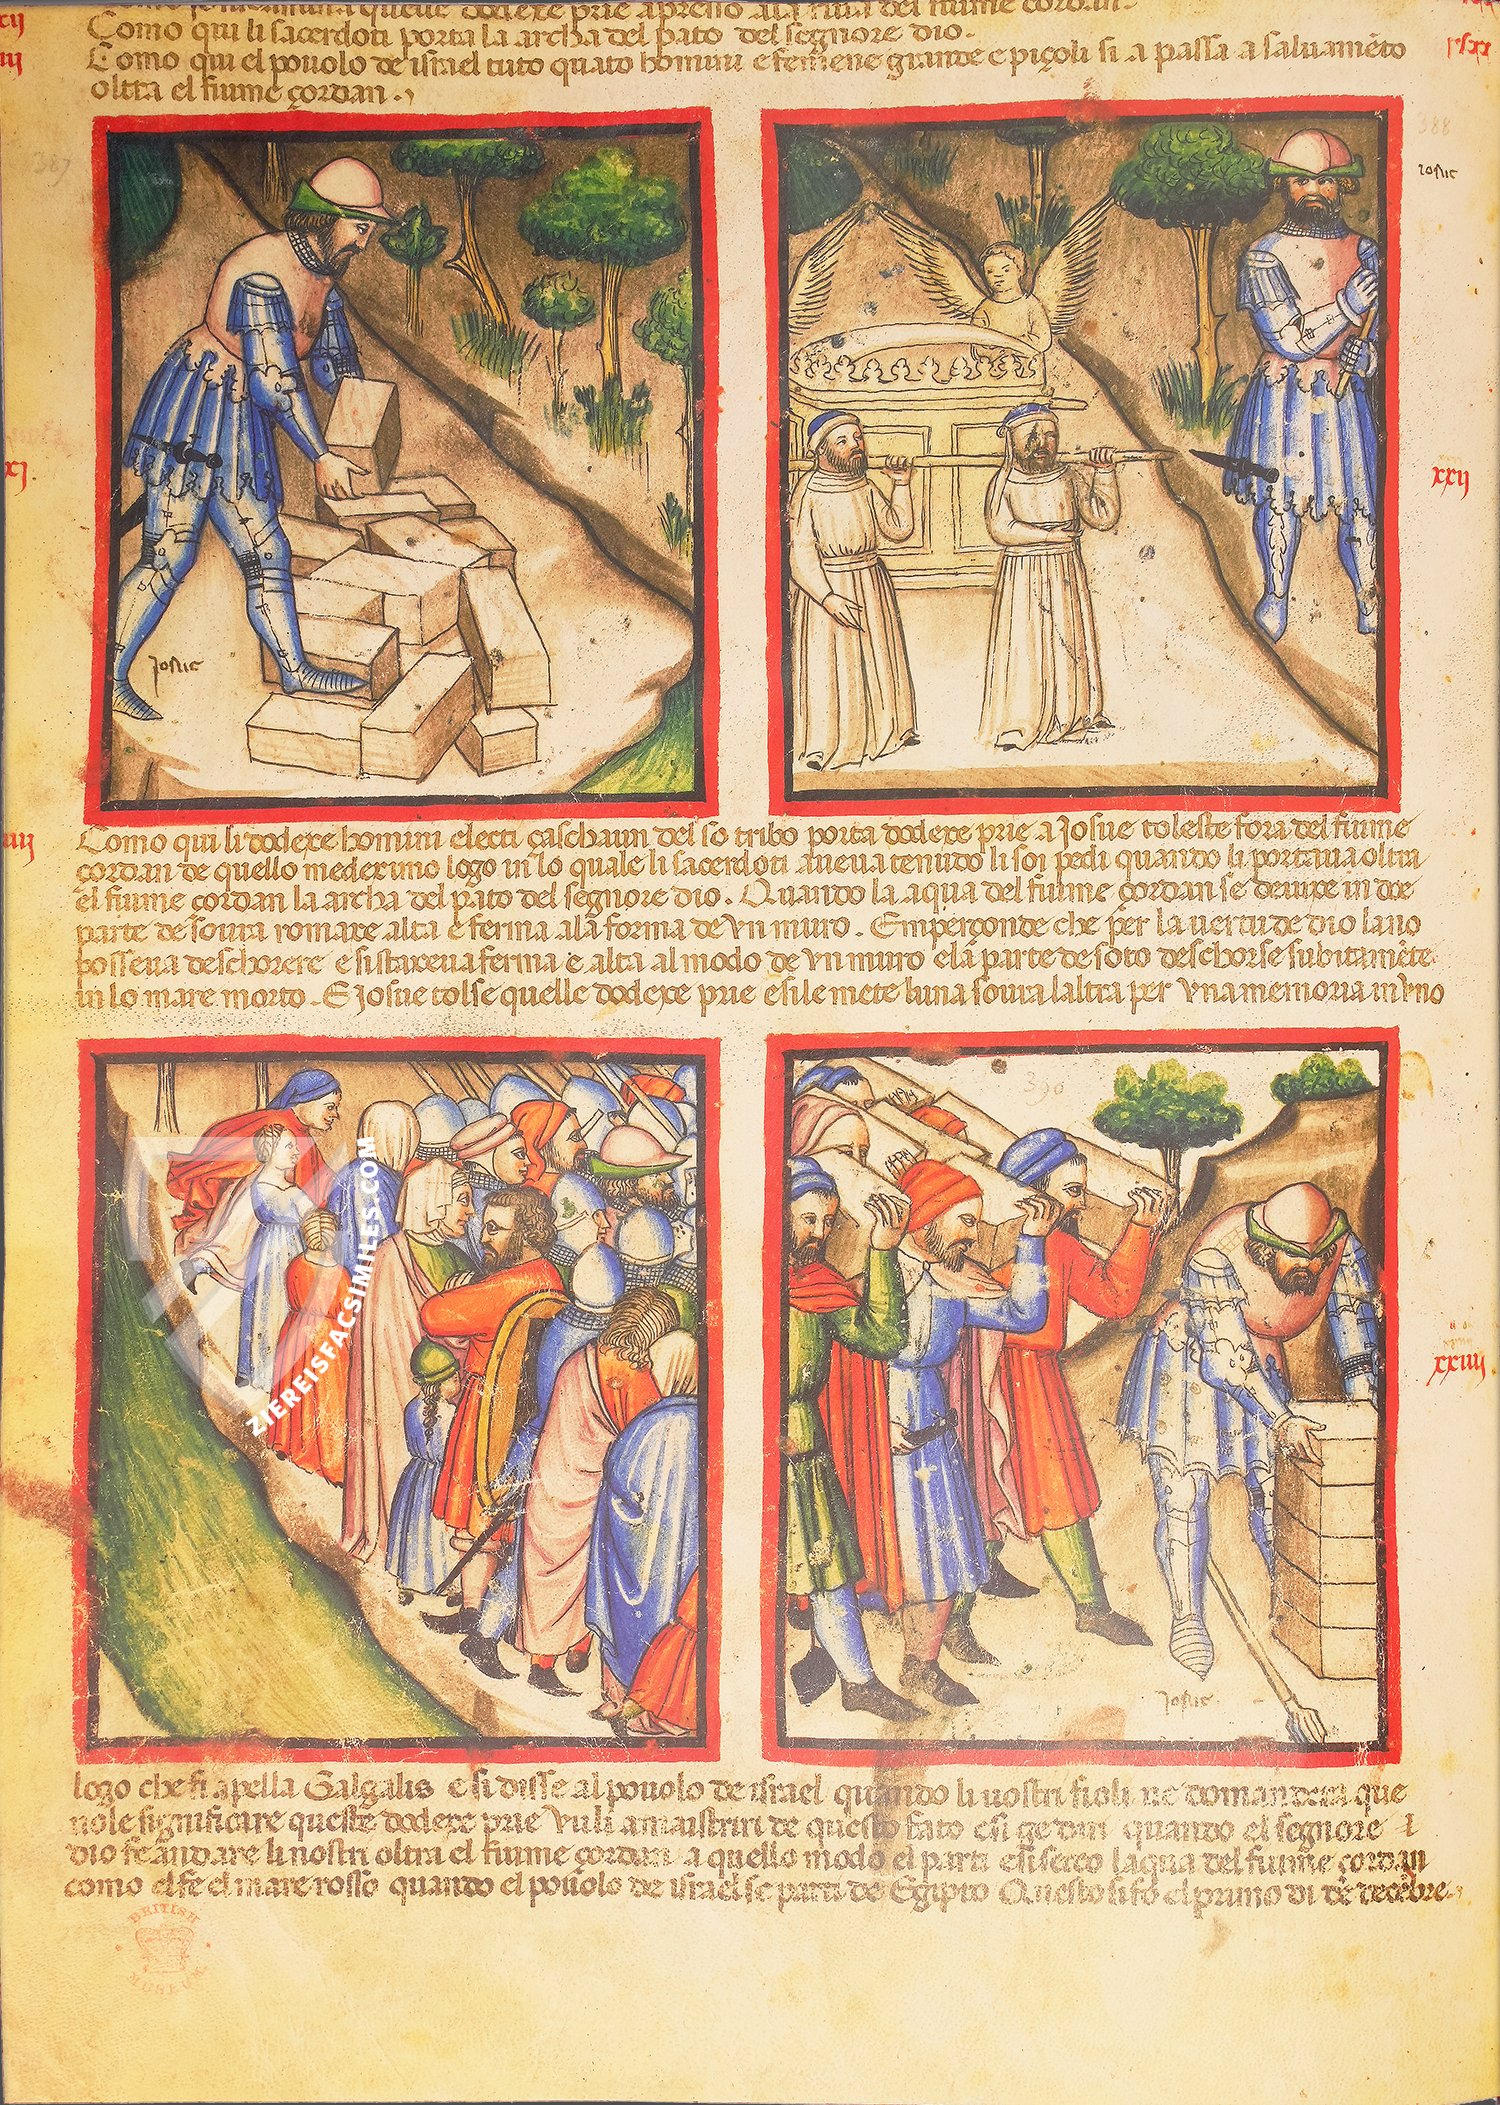 quelle dodexe prie apresso a la riva del fiume cordan.
Como qui li sacerdoti porta la archa del pato del segnore dio.
Como qui el povolo de israel tuto quāto homini e femene grande e piçoli si a passa a salvamēto
oltra el fiume çordan.
387
388
iosue
xxij
xj.
iosue
Como qui li dodexe homini electi çaschaun del so tribo porta dodexe prie a Josue toleste fora del fiume
çordan de quello medeximo logo in lo quale li sacerdoti aveva tenudo li soi pedi quando li portava oltra
el fiume çordan la archa del pato del segnore dio. Quando la aqua del fiume çordan se devixe in doe
parte de sovra romaxe alta e ferma a la forma de vn muro. Emperçonde che per la vertu de dio la no
posseva deschorere e si staxeva ferma e alta al modo de vn muro e la parte de soto deschorse subitamēte
in lo mare morto. E Josue tolse quelle dodexe prie e si le mete luna sovra laltra per vna memoria in vno
390
xxiiij
iosue
logo che si apella Galgalis e si disse al povolo de israel quando li vostri fioli ve domandera que
vole significare queste dodexe prie vuli amaistriri de questo fato e si ge diri quando el segnore
dio fe andare li nostri oltra el fiume çordan a quello modo el parti e si seco laqua del fiume çordan
como el fe el mare rosso quando el povolo de israel se parti de Egipto Questo si fo el primo di de decēbre
BRITISH MUSEUM
ZIEREISFACSIMILES.COM